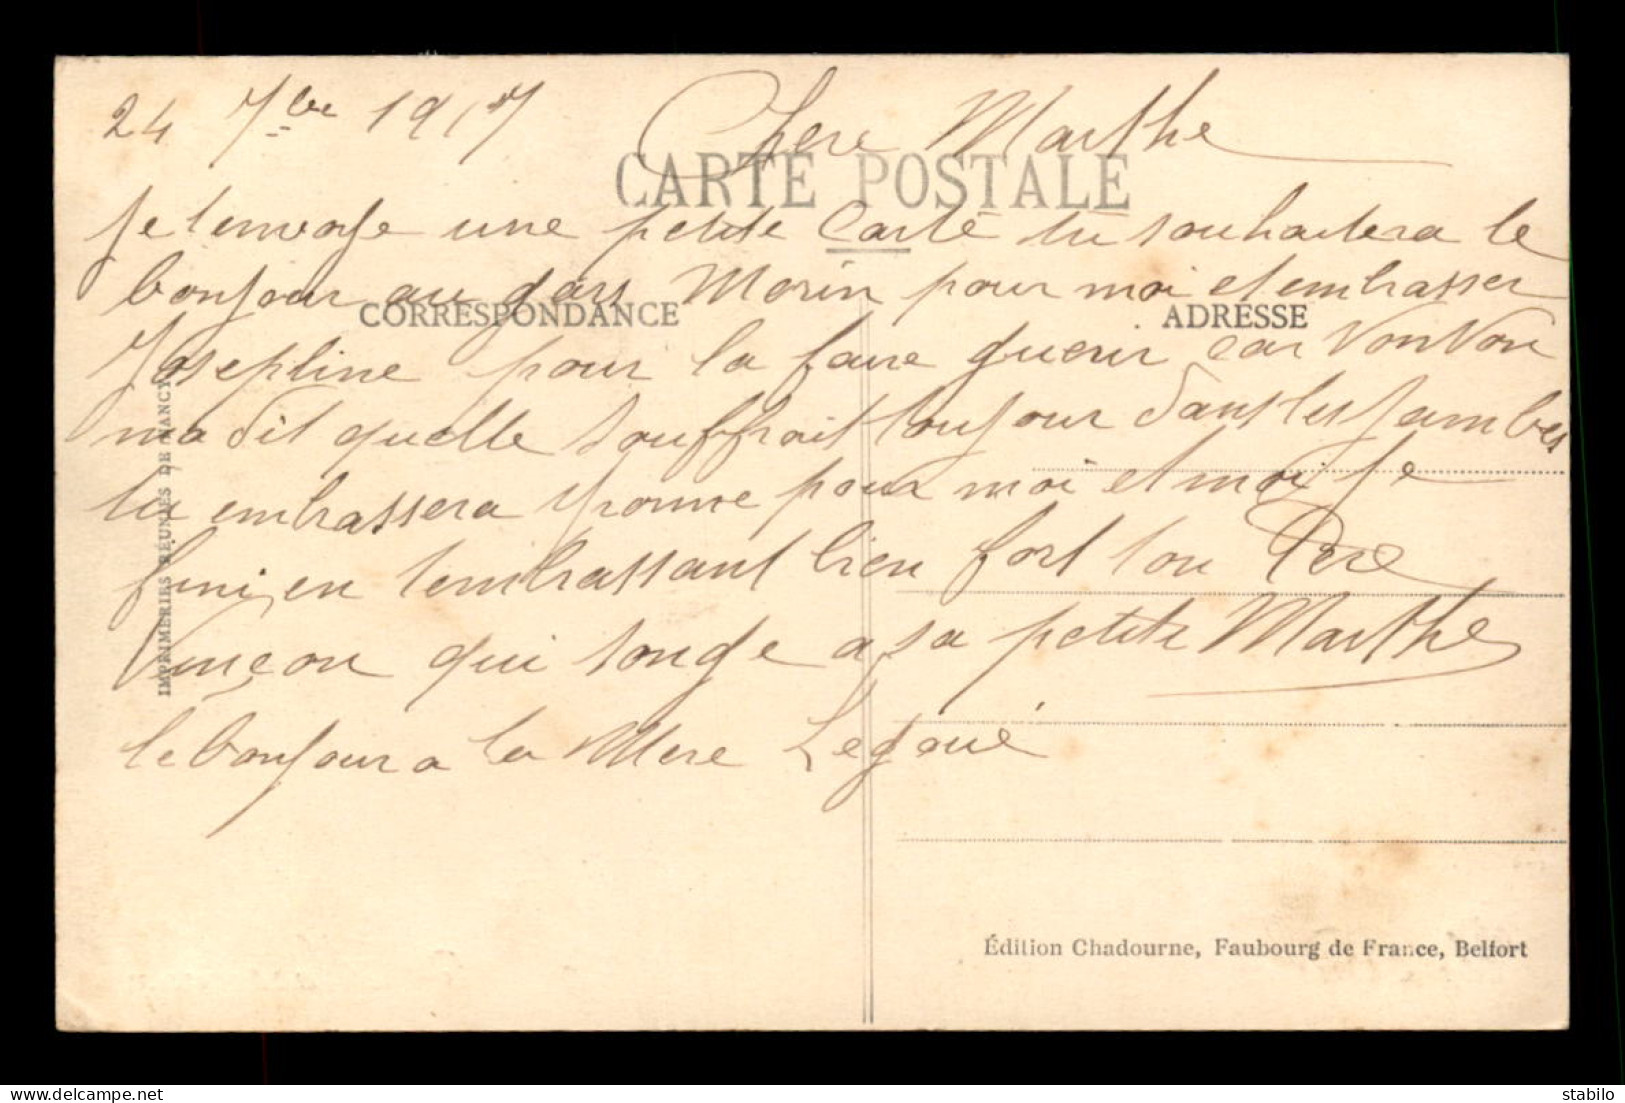 24 7bre 1917 Chere Marthe
CARTE POSTALE
Je tenvoye une petite Carte tu souhaitera le
bonjour au gars Morin pour moi et embrasser
CORRESPONDANCE
ADRESSE
Josepline pour la faire guerir car VonVon
ma dit quelle souffrait toujour dans les jambes
tu embrassera Yvonne pour moi et moi je
fini en tembrassant bien fort ton Pere
Vinçon qui songe a sa petite Marthe
le bonjour a la Mere Legoué
IMPRIMERIES RÉUNIES DE NANCY
Édition Chadourne, Faubourg de France, Belfort
stabilo
delcampe.net